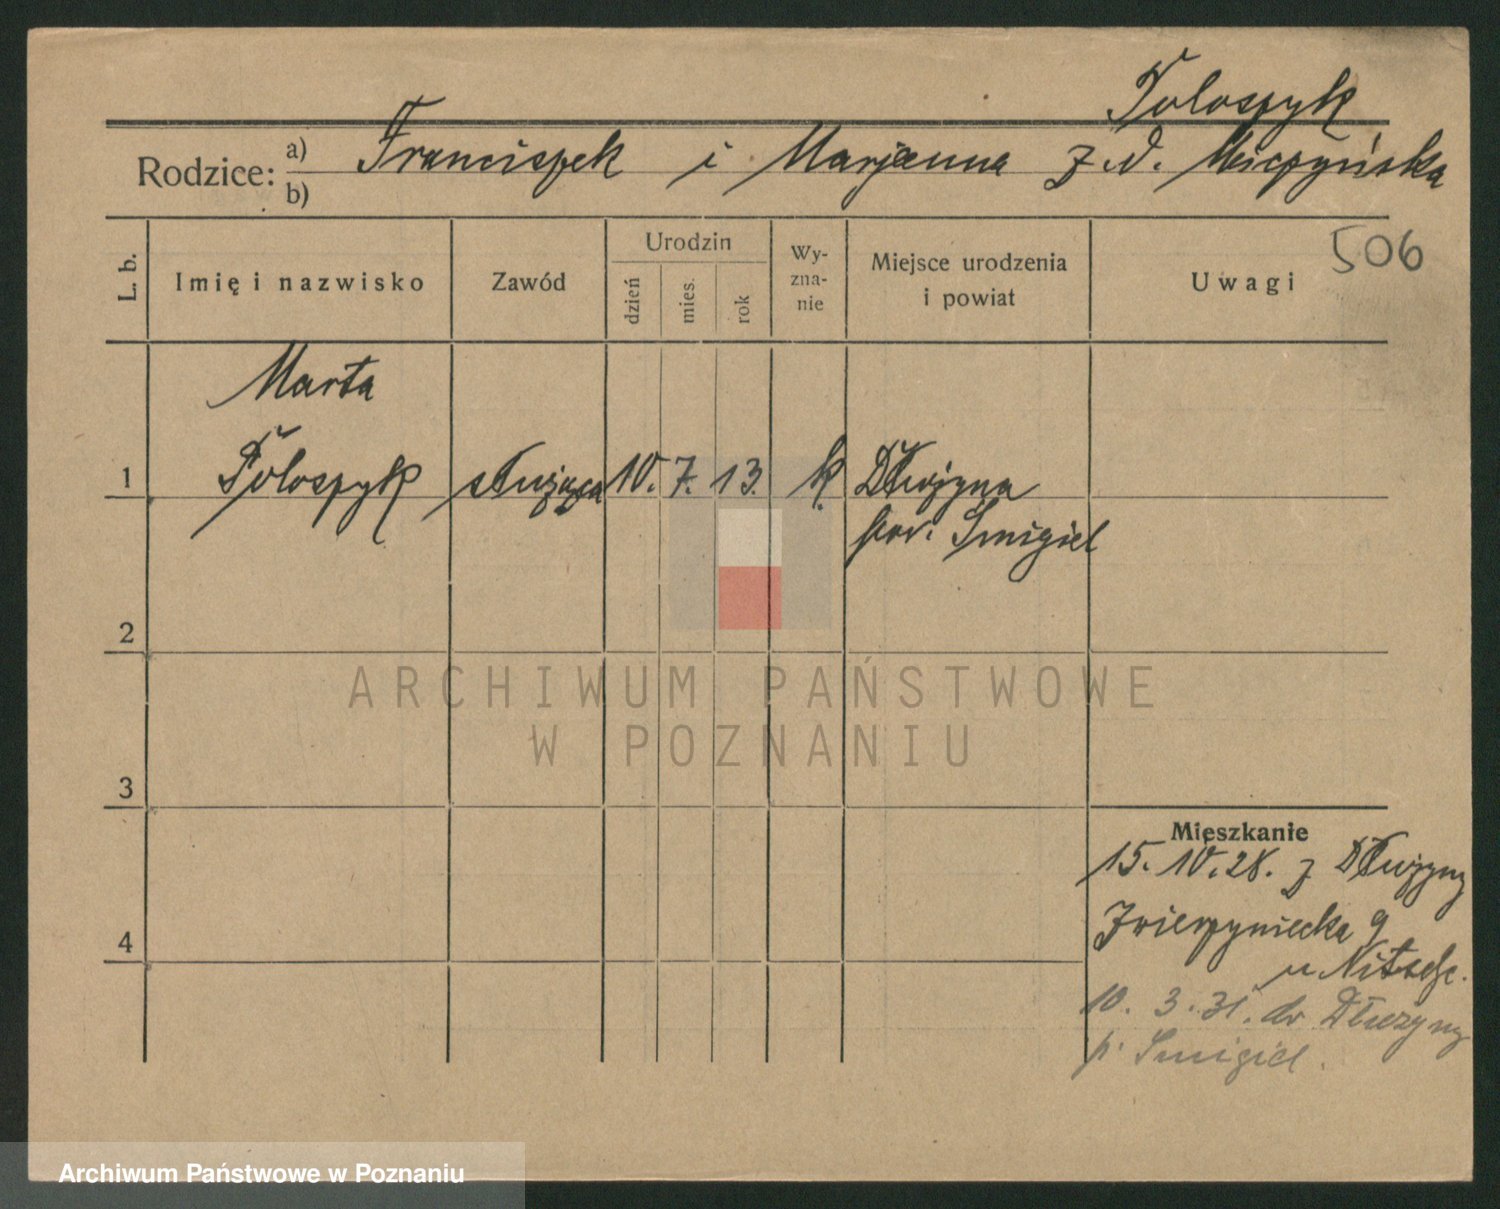 Toloszyk
Rodzice: a) b) Franciszek i Marjanna z d.
506
L. b. Imię i nazwisko Zawód Urodzin dzień mies. rok Wy-zna-nie Miejsce urodzenia i powiat Uwagi
Marta
1 Toloszyk służąca 10. 7. 13. k. Dłużyna
pow. Śmigiel
2
3
Mieszkanie
15. 10. 28. z Dłużyny
4 Zwierzyniecka 9
u Nitsche.
10. 3. 31. do Dłużyny
p. Śmigiel.
ARCHIWUM PAŃSTWOWE
W POZNANIU
Archiwum Państwowe w Poznaniu